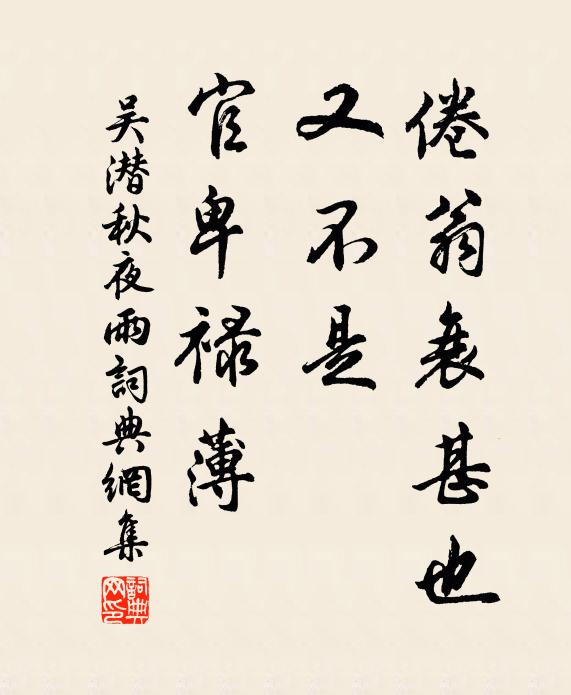 倦翁衰甚也
又不是
官卑禄薄
吴潜秋夜雨詞典網集
詞典網印